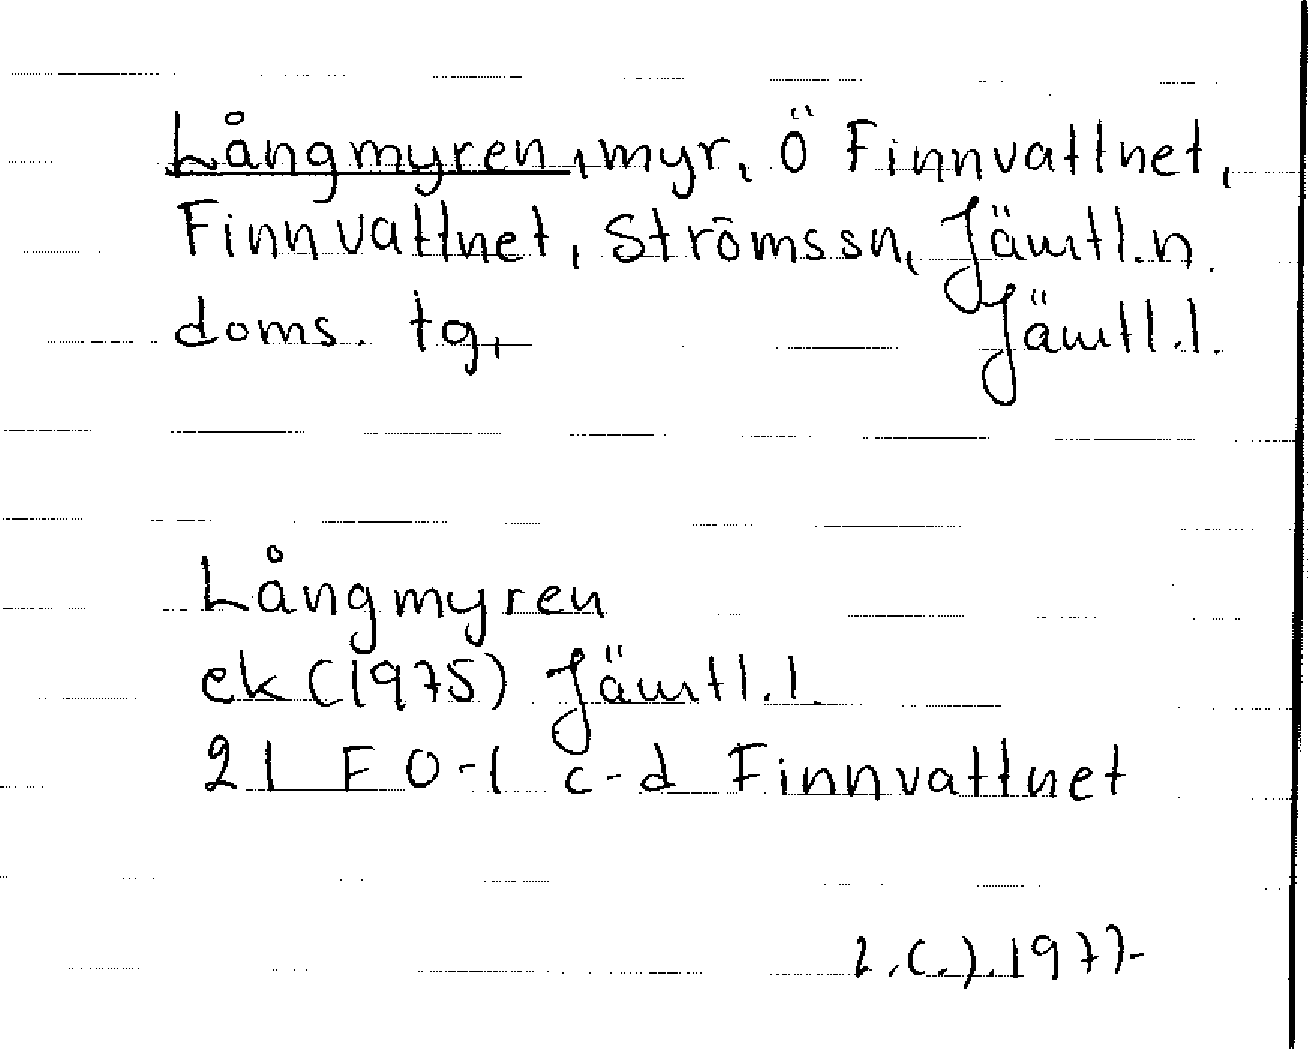 Långmyren, myr, Ö Finnvattnet,
Finnvattnet, Strömssn, Jämtl.n.
doms. tg, Jämtl.l.
Långmyren
ek (1975) Jämtl.l.
21 F 0-1 c-d Finnvattnet
1977